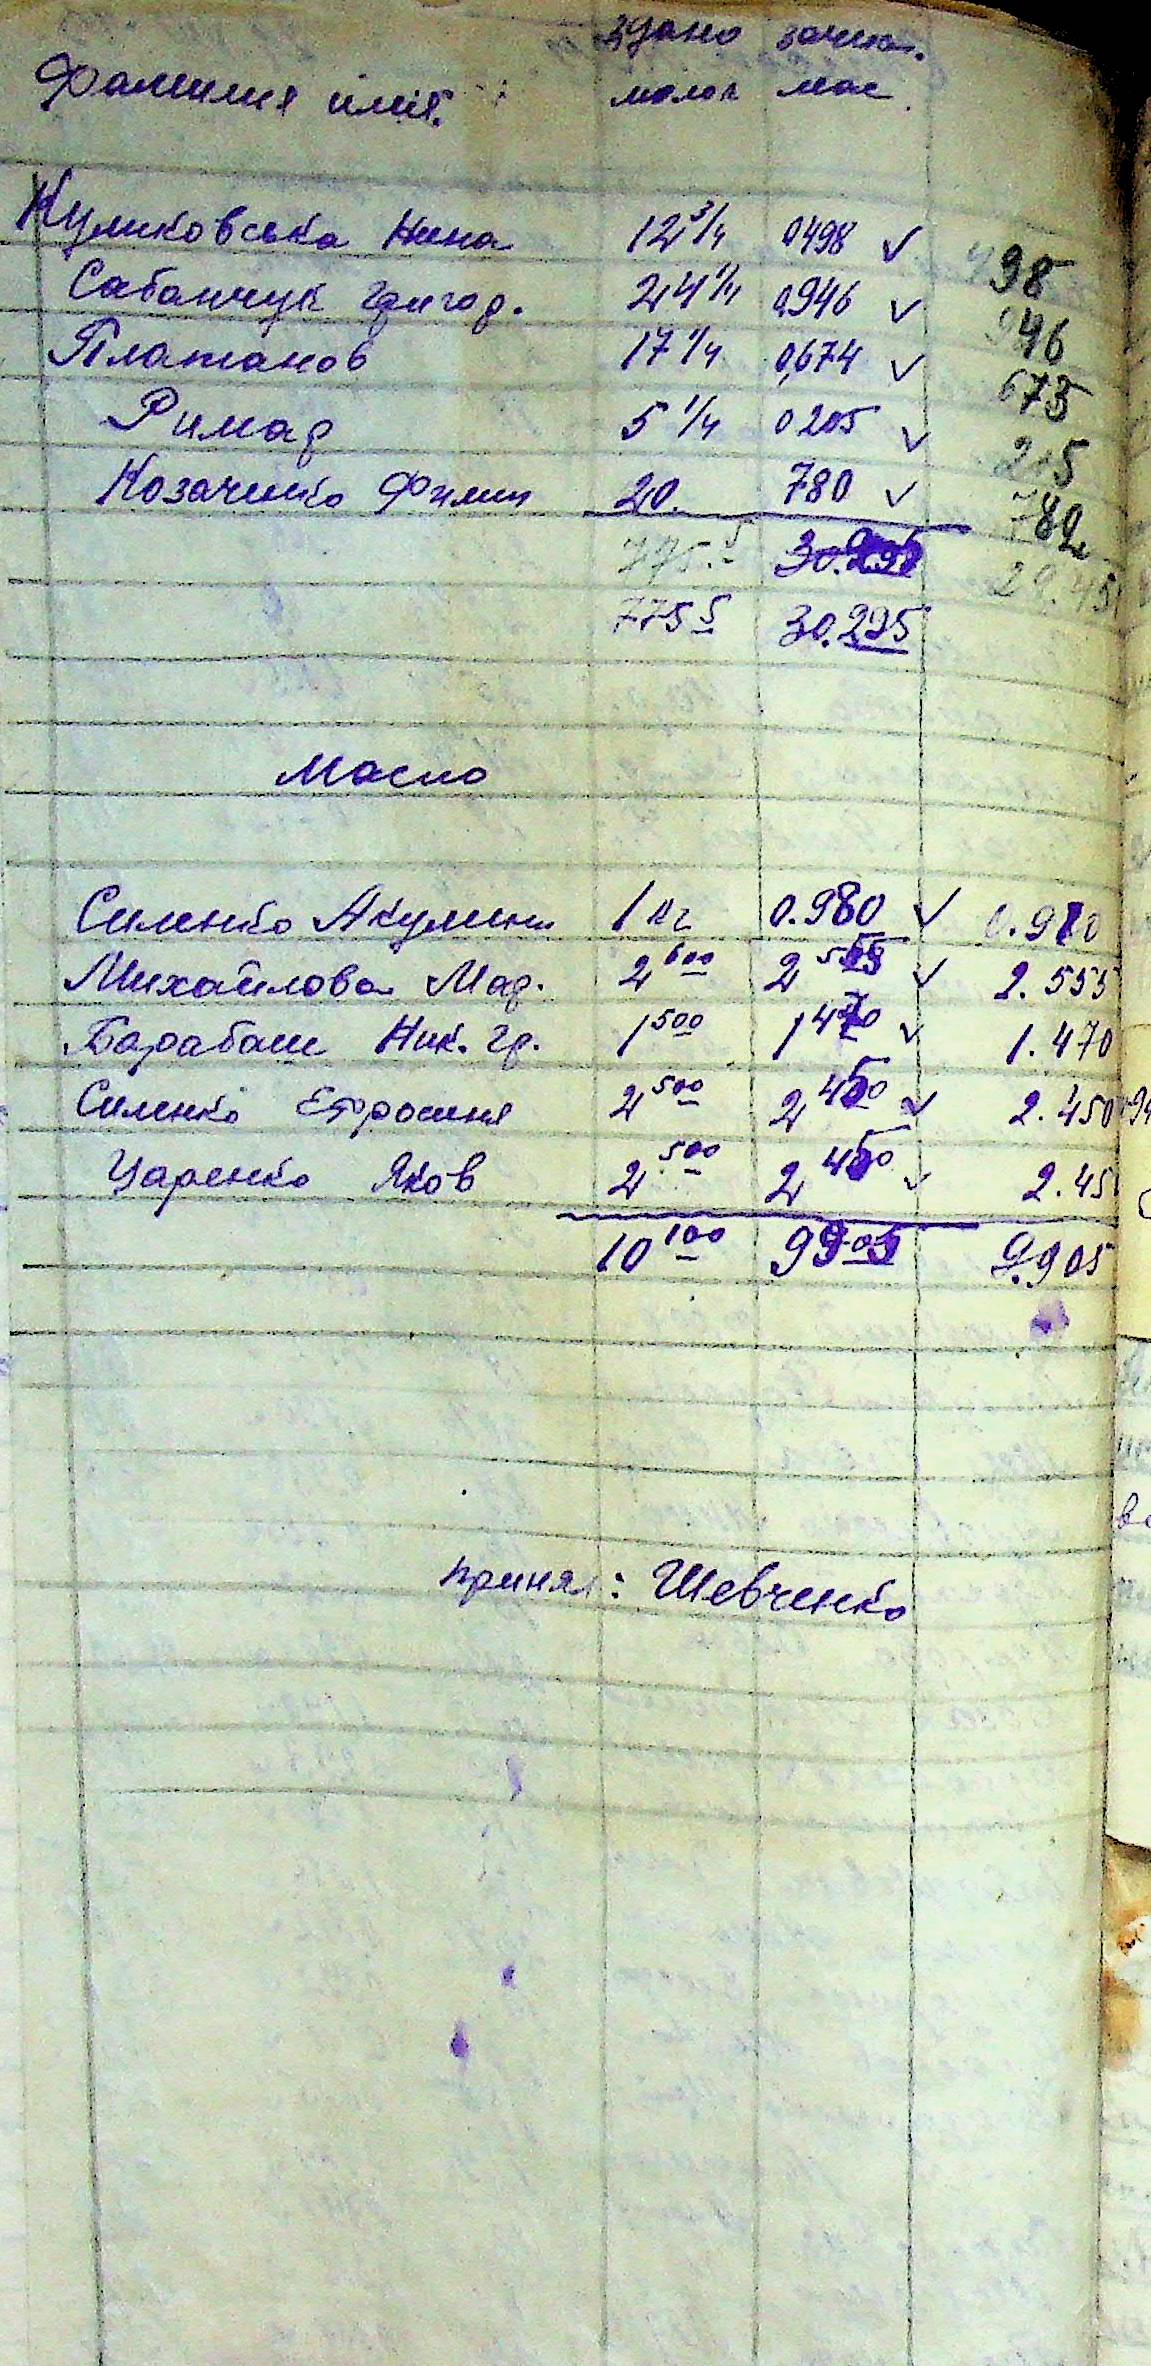 здано зачик.
Фамилия имя. молок мас
Куликовська Нина 12 3/4 0498 ✓ 498
Сабанчук Григор. 24 1/4 0,946 ✓ 946
Платанов 17 1/4 0,674 ✓ 673
Римар 5 1/4 0205 ✓ 205
Козаченко Филип 20. 780 ✓ 782
775.5
775 5 30.295
Масло
Силенко Акулина 1 кг 0.980 ✓ 0.980
Михайлова Мар. 2 600 2 555 ✓ 2.555
Барабаш Ник. Гр. 1 500 1 470 ✓ 1.470
Силенко Єфросиня 2 500 2 450 ✓ 2.450
Царенко Яков 2 500 2 450 ✓ 2.45
10 100 9905 9.905
принял: Шевченко